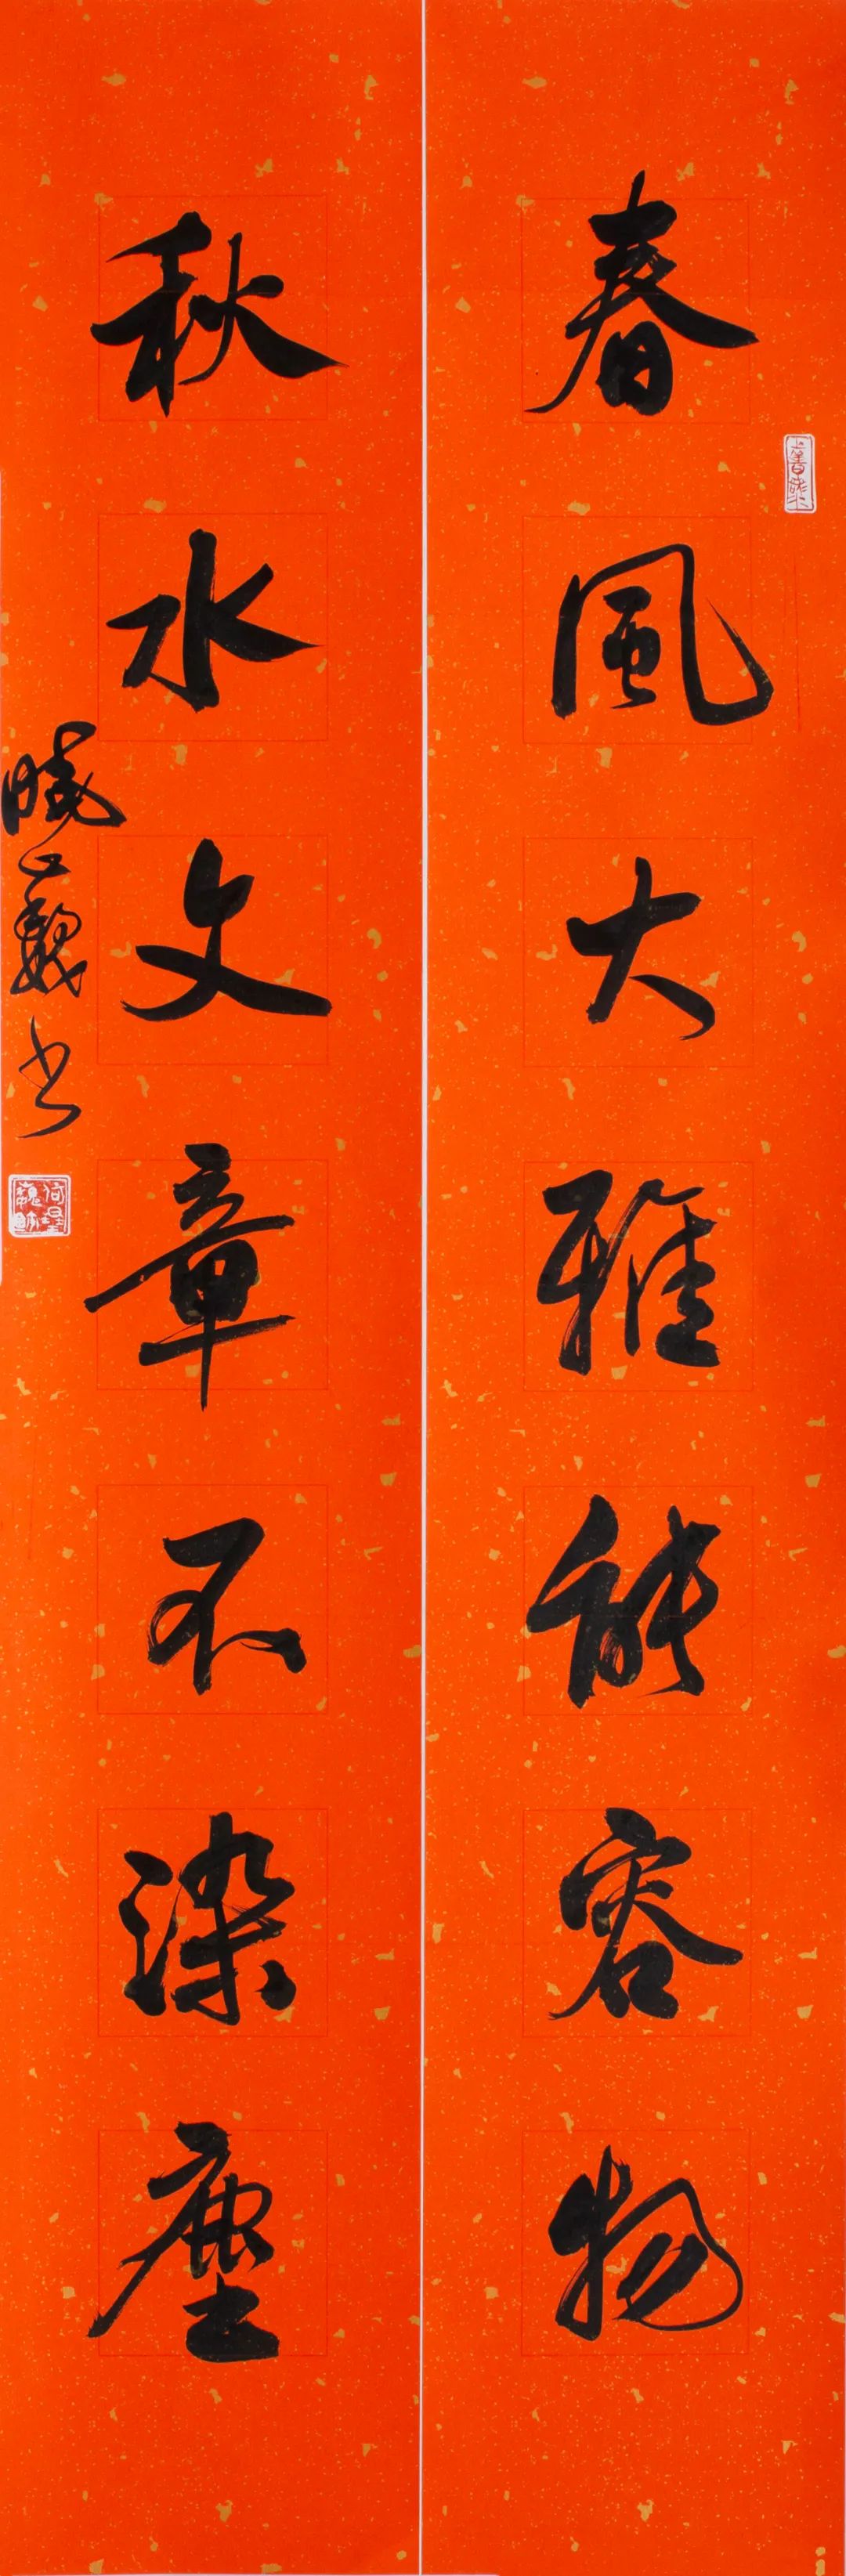 春風大雅能容物
秋水文章不染塵
曉巍书